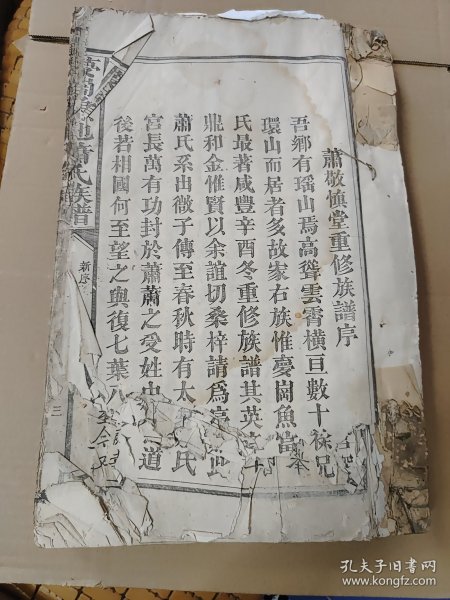 蕭敬慎堂重修族譜序
吾鄉有瑤山焉高聳雲霄橫亘數十祿兄
環山而居者多故家右族惟憂岡魚當
氏最著咸豐辛酉冬重修族譜其英
鼎和金惟賢以余誼切桑梓請爲
蕭氏系出微子傳至春秋時有太 氏
宮長萬有功封於蕭蕭之受姓 道
後若相國何至望之與復七葉八
蕭氏族譜
新序
三
孔夫子旧书网
www.kongfz.com